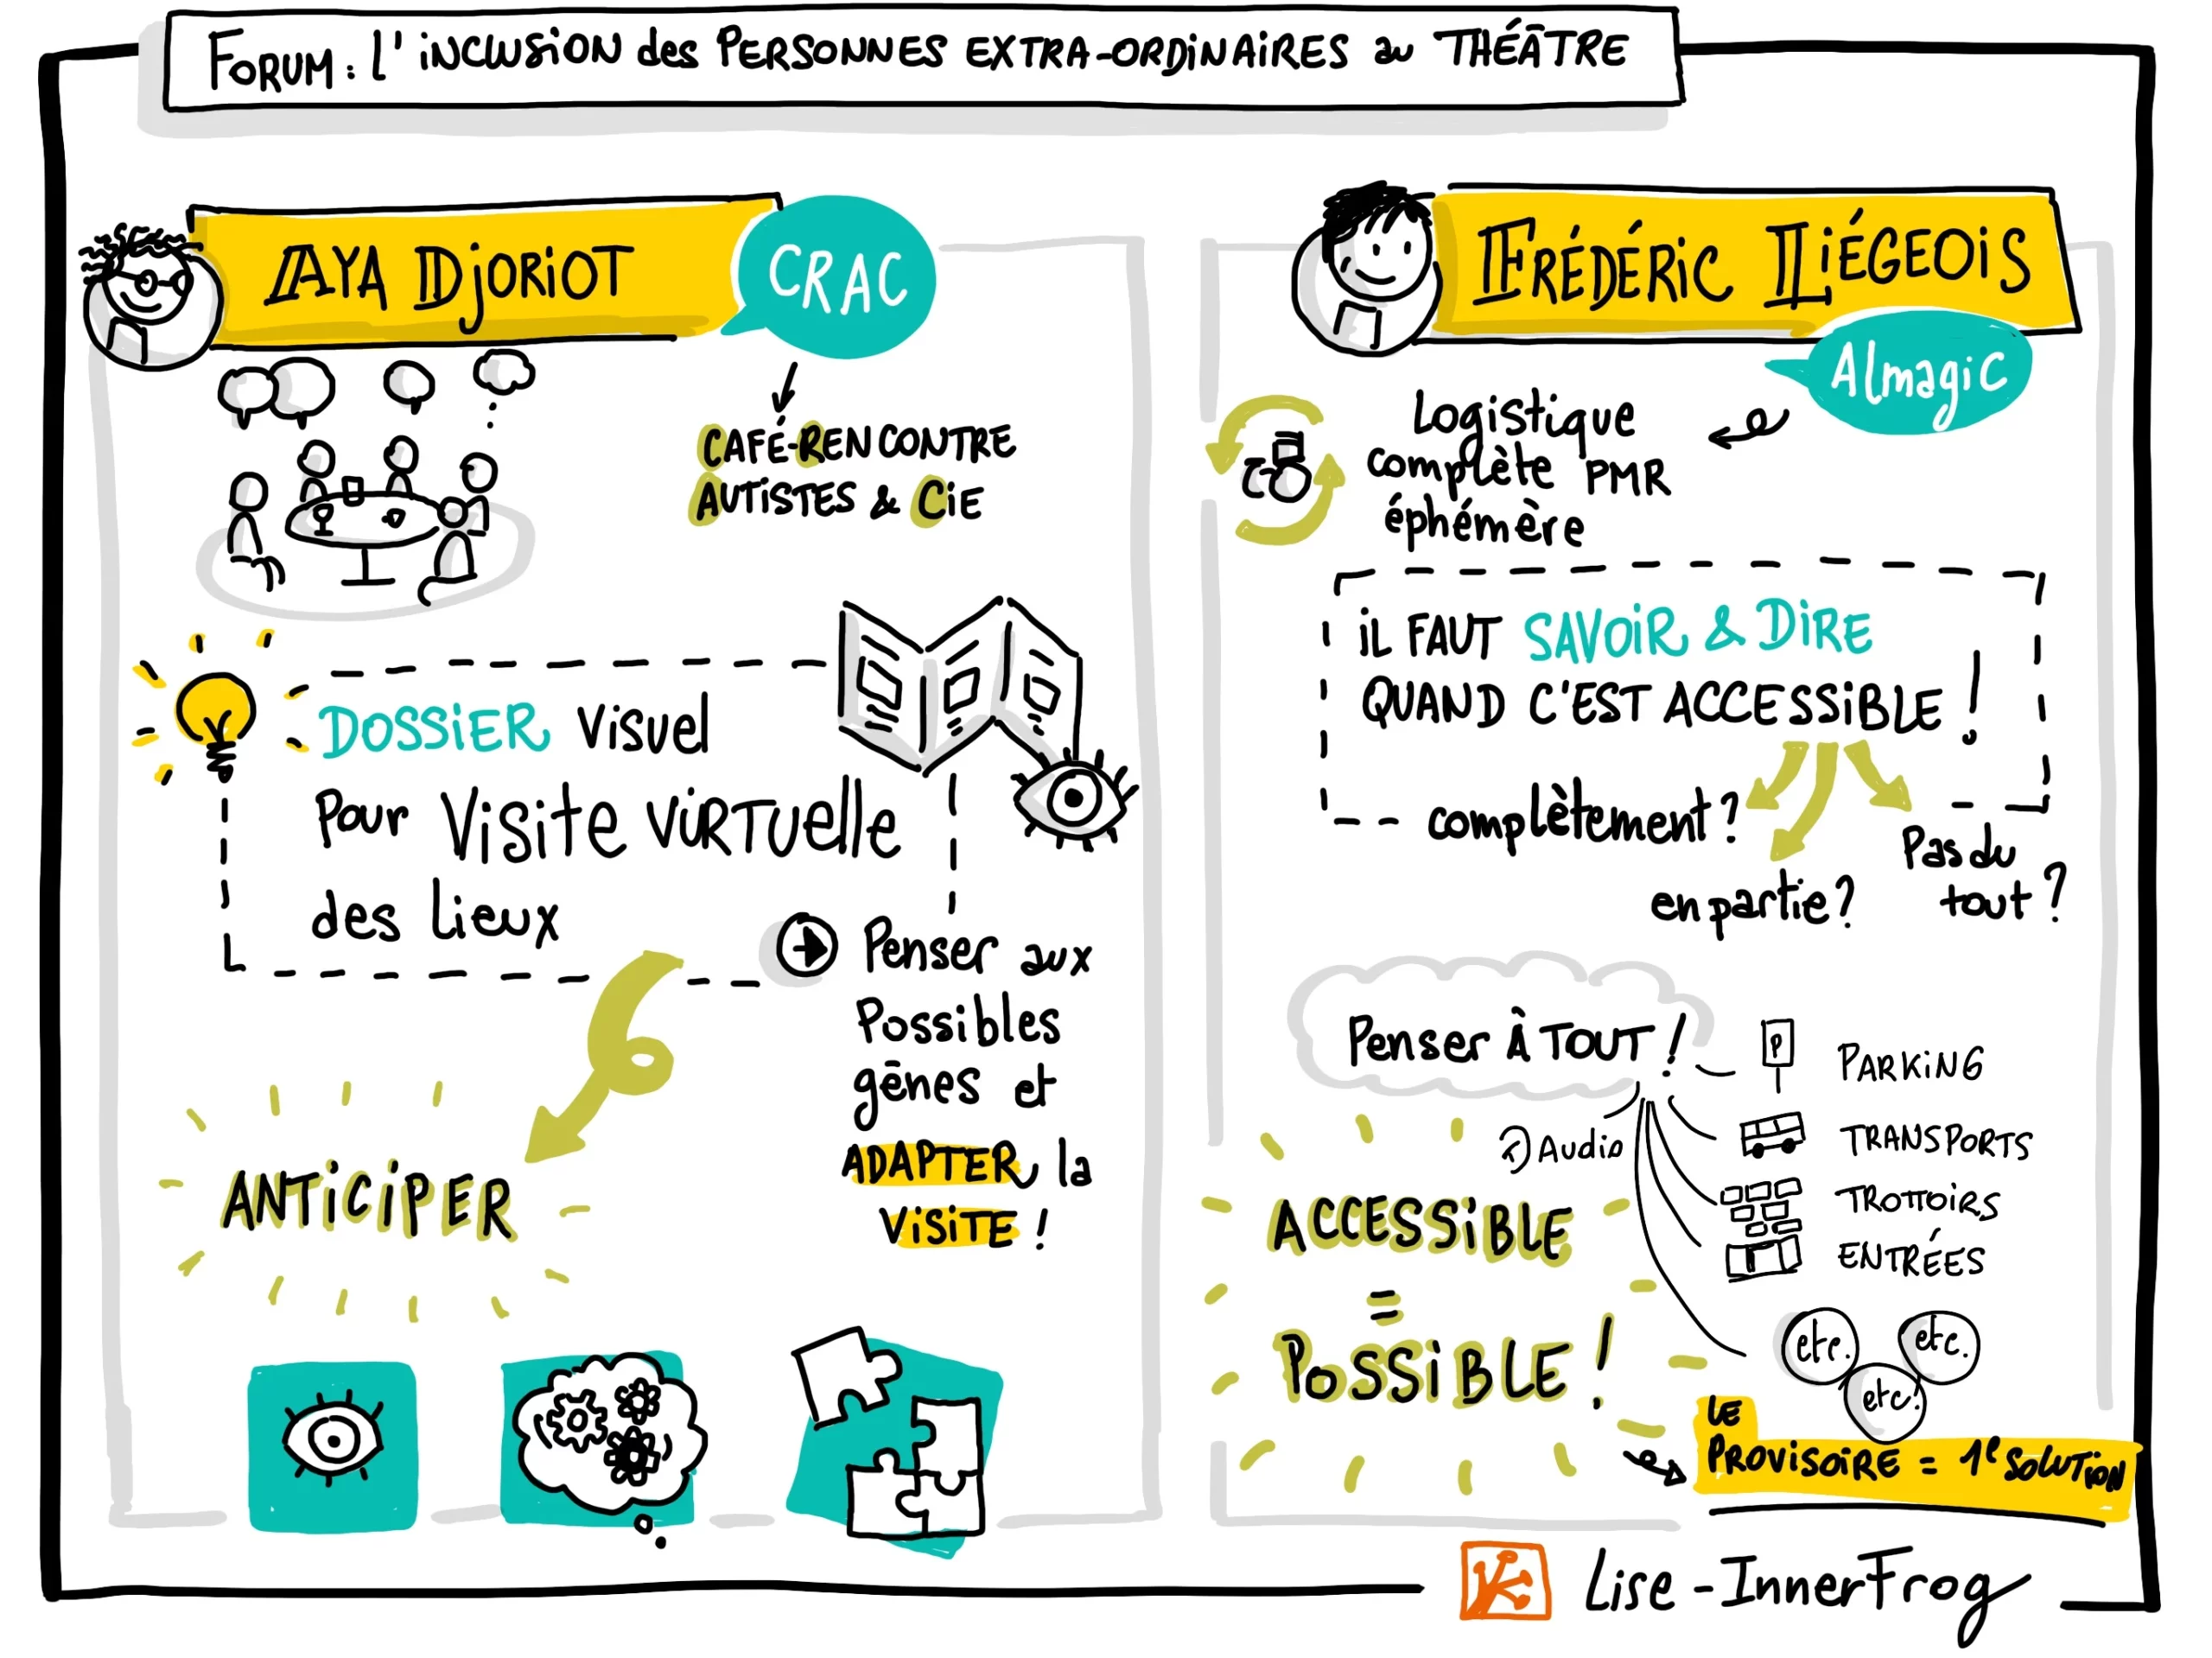 FORUM : L'iNCLUSiON des PERSONNES EXTRA-ORDiNAiRES au THÉÂTRE
AYA DjORiOT
CRAC
CAFÉ-RENCONTRE
AUTiSTES & CiE
DOSSiER Visuel
Pour Visite ViRTuelle
des Lieux
Penser aux
Possibles
gênes et
ADAPTER la
ViSiTE !
ANTiCiPER
FRÉDÉRiC LiÉGEOiS
Almagic
Logistique
complète PMR
éphémère
iL FAUT SAVOiR & DiRE
QUAND C'EST ACCESSiBLE !
complètement ?
en partie ?
Pas du
tout ?
Penser À TOUT !
P
PARKiNG
Audio
TRANSPORTS
TROTTOiRS
ENTRÉES
etc.
etc.
etc!
ACCESSiBLE
=
POSSiBLE !
LE
PROVISOIRE = 1e SOLUTION
Lise - InnerFrog